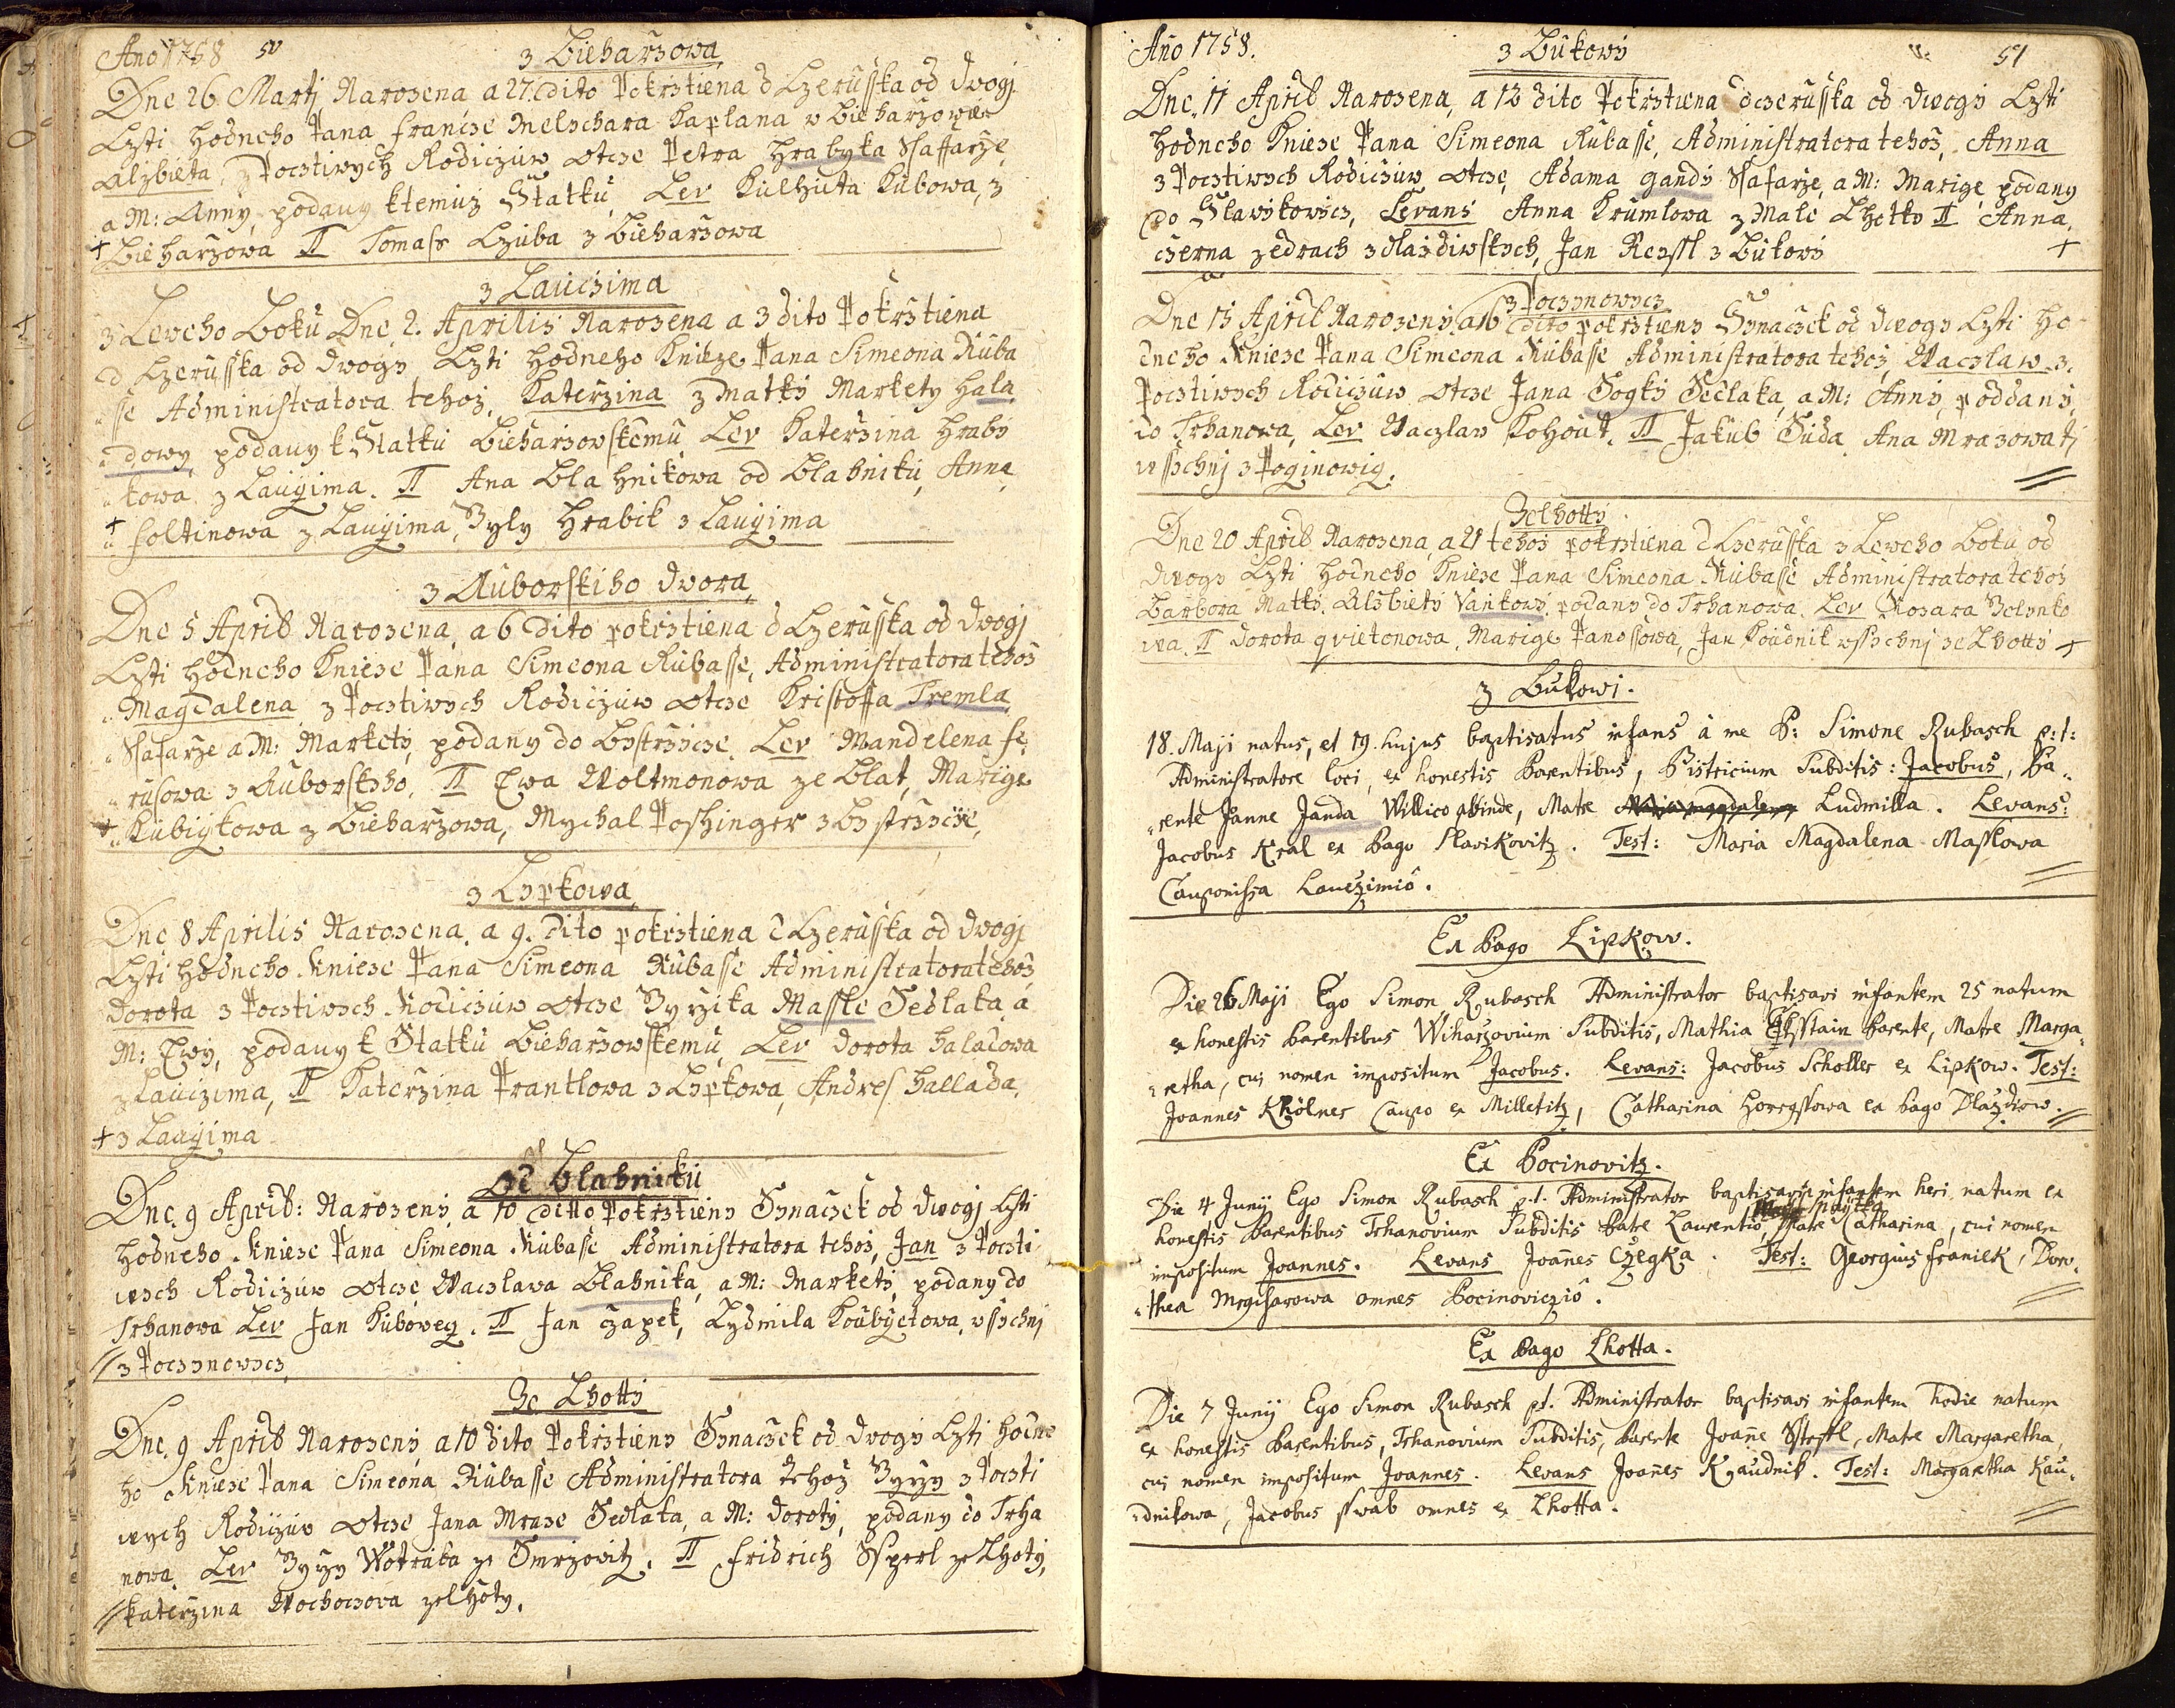 Ano 1758 50
z Bieharzowa
Dne 26 Martj Narozena a 27. dito Pokrztiena d Czerusska od dwogj
Czti hodneho Pana Francze Melschara Kaplana w Bieharzowie
Alzbieta, z Pocztiwych Rodiczuw otcze Petra Hrabyka Ssaffarze
a M: Anny, podany ktemuz Statku Lev Kubowa, z
+ Bieharzowa TT Tomass Czuba z Bieharzowa
z Lauczima
z Leweho Boku Dne 2. Aprilis Narozena a 3 dito Pokrztiena
d Czerusska od dwogy Czti hodneho Knieze Pana Simeona Ruba
sse Administratora tehoz, Katerzina z Matky Markety Hala
dowy, podany k Statku Bieharzowskemu Lev Katerzina Hraby
kowa z Lauczima. TT Ana Blahnikowa od Blahniku, Anna
+ Foltinowa z Lauczima, Hrabik z Lauczima
z Auborskiho dwora
Dne 5 April Narozena, a 6 dito pokrztiena d Czerusska od dwogj
Czti hodneho Knieze Pana Simeona Rubasse, Administratora tehoz
Magdalena z Pocztiwych Rodiczuw otcze Kristoffa Tremla
Ssafarze a M: Markety, podany do Bystrzicze Lev Mandelena Fe
rusowa z Auborskyho, TT Ewa Woltmonowa ze Blat, Marige
+ Kubiykowa z Bieharzowa, Mychal Poschinger z Bystrzicze,
z Lypkowa
Dne 8 Aprilis Narozena, a 9. dito pokrztiena d Czerusska od dwogj
Czti hodneho Knieze Pana Simeona Rubasse Administratora tehoz
Dorota z Pocztiwych Rodiczuw otcze Massle Sedlaka a
M: Ewy, podany k Statku Bieharzowskemu, Lev Dorota Haladowa
z Lauczima, TT Katerzina Prantlowa z Lypkowa, Andres Hallada
+ z Lauczima
od Blahniku
Dne 9 April: Narozeny a 10 ditto Pokrztieny Synaczek od dwogj Czti
hodneho Knieze Pana Simeona Rubasse Administratora tehoz, Jan z Poczti
wych Rodiczuw otcze Waczlawa Blahnika, a M: Markety, podany do
Trhanowa Lev Jan Kuboweg. TT Jan Czapek, Lydmila Koubyctowa, wssychnj
z Poczynowycz
Ze Lhotty
Dne 9 April Narozeny, a 10 dito Pokrztieny Synaczek od dwogy Czti hodne
ho Knieze Pana Simeona Rubasse Administratora tehoz z Poczti
wych Rodiczuw otcze Jana Mraze Sedlaka, a M: Doroty, podany do Trha
nowa. Lev Wotraka ze Smrzowitz. TT Fridrich Ssperl ze Lhoty,
Katerzina Wochoczowa ze Lhoty.
Año 1758. 51
z Bukowy
Dne 11 April Narozena, a 12 dito Pokrztiena dczerusska od dwogy Czti
hodneho Knieze Pana Simeona Rubasse, Administratora tehoz, Anna
z Pocztiwych Rodiczuw otcze, Adama Gandy Ssafarze, a M: Marige podany
do Slawikowicz, Levans Anna Krumlowa z Male Lhotky TT Anna
czerna, Jan z Bukowy +
z Poczynowycz
Dne 15 April Narozeny, a 16 dito pokrztieny Synaczek od dwogy Czti ho
dneho Knieze Pana Simeona Rubasse Administratora tehoz, Waczlaw z
Pocztiwych Rodiczuw otcze Jana Sogky Sedlaka, a M: Anny, poddany
do Trhanowa, Lev Waczlav Kohout, TT Jakub Suda, Ana Mrazowa ti
wssychnj z Poginowig.
Zelhotty
Dne 20 April Narozena, a 21 tehoz pokrztiena d Czerusska z Leweho Boku od
dwogy Czti hodneho Knieze Pana Simeona Rubasse Administratora tehoz
Barbora Matky Alzbiety Vankowy, podany do Trhanowa, Lev Rozara
wa. TT Dorota Marige Panossowa, Jan Koudnik wssychnj ze Lhotty +
z Bukowi.
18. Maji natus, et 19. hujus baptisatus infans à me P: Simone Rubasch p:t:
Administratore loci, ex honestis Parentibus, Bistricium Subditis: Jacobus, Pa„
„rente Janne Janda Villico abinde, Matre Ludmilla. Levans:
Jacobus Kral ex Pago Slavikovitz. Test: Maria Magdalena Masslowa
Cauponissa Lauczimiô.
Ex Pago Lipkow.
Die 26 Maji Ego Simon Rubasch Administrator baptisavi infantem 25 natum
ex honestis Parentibus Wiharzovium Subditis, Mathia Parente, Matre Marga„
„retha, cui nomen impositum Jacobus. Levans: Jacobus Scholler ex Lipkow. Test:
Joannes Caupo ex Milletitz, Catharina ex Pago
Ex Pocinovitz.
Die 4 Junij Ego Simon Rubasch p.t. Administrator baptisavi infantem heri natum ex
honestis Parentibus Trhanovium Subditis Patre Laurentio, Matre Catharina, cui nomen
impositum Joannes. Levans Joañes Czegka. Test: Georgius Franiek, Doro„
„thea omnes Pocinovicziô.
Ex Pago Lhotta.
Die 7 Junij Ego Simon Rubasch pt. Administrator baptisavi infantem hodie natum
ex honestis Parentibus, Trhanovium Subditis, Parente Joañe, Matre Margaretha,
cui nomen impositum Joannes. Levans Joañes Kaudnik. Test: Margaretha Kau„
„dnikowa, Jacobus Swab omnes ex Lhotta.